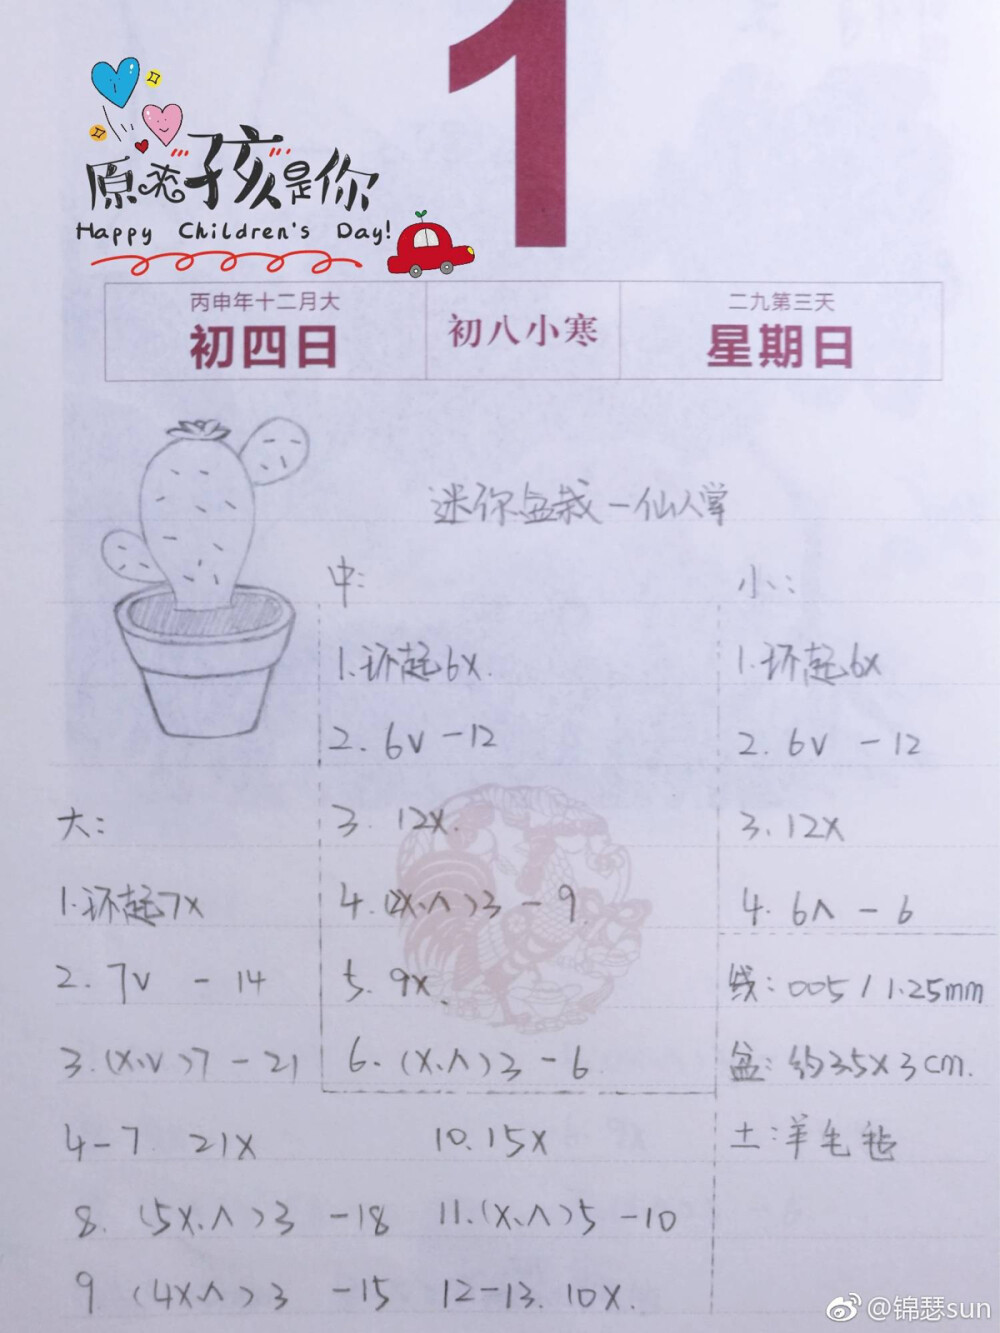 1
原来孩是你
Happy Children's Day!
丙申年十二月大
初四日
初八小寒
二九第三天
星期日
迷你盆栽一仙人掌
中:
1.环起6X.
2. 6V - 12
3. 12X.
4.(2X、∧)3 - 9
5. 9X
6. (X、∧)3 - 6
小:
1.环起6X
2. 6V - 12
3. 12X
4. 6∧ - 6
大:
1.环起7X
2. 7V - 14
3.(X、V)7 - 21
4-7 21X
8. (5X、∧)3 -18
9. (4X、∧)3 -15
10. 15X
11.(X、∧)5 -10
12-13. 10X.
线: 005 / 1.25mm
盆: 约3.5X3cm.
土:羊毛毡
@锦瑟sun